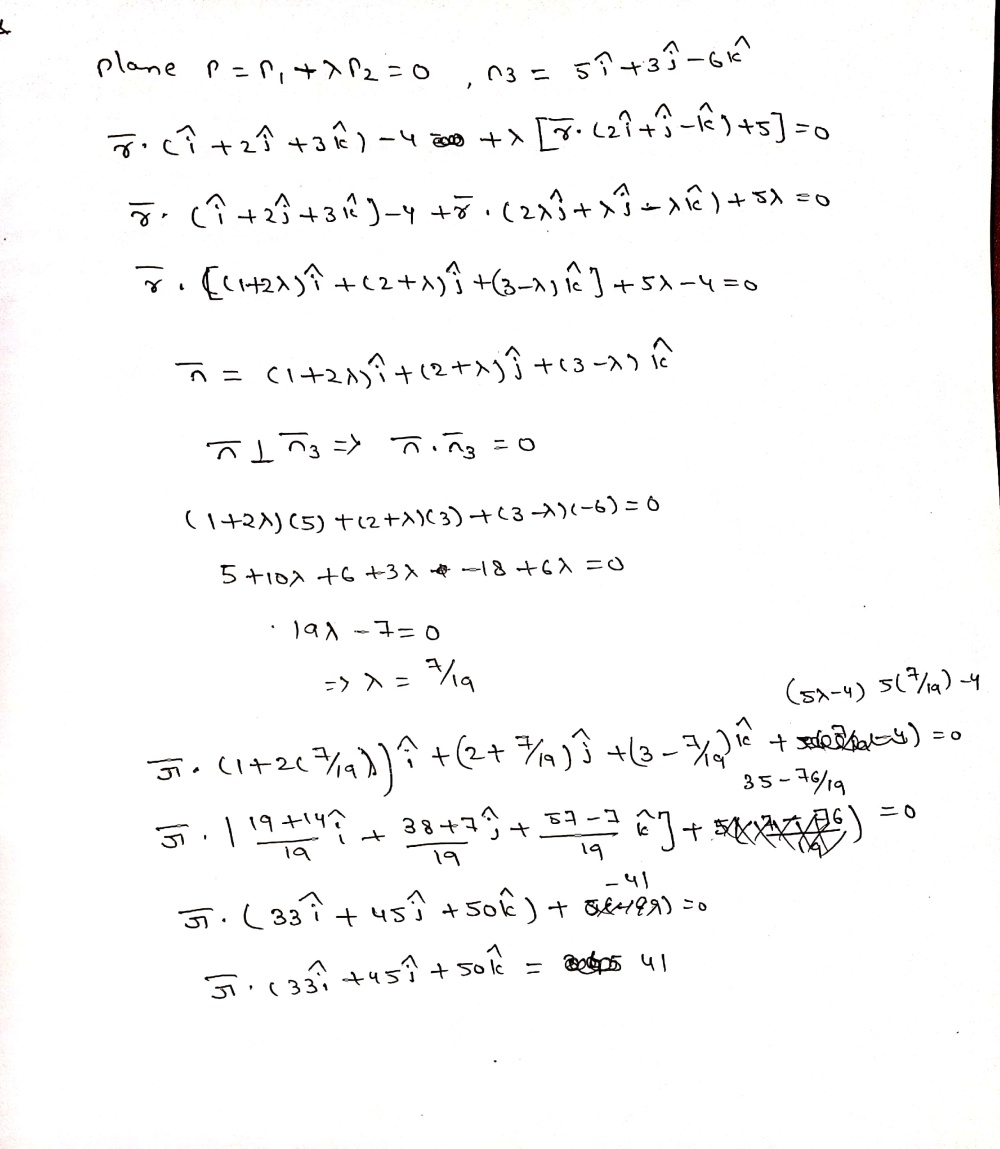 plane P = P₁ + λP₂ = 0 , n3 = 5î + 3ĵ - 6k̂
r̅. (î + 2ĵ + 3k̂) - 4 + λ [r̅. (2î + ĵ - k̂) + 5] = 0
r̅. (î + 2ĵ + 3k̂) - 4 + r̅. (2λĵ + λĵ - λk̂) + 5λ = 0
r̅. [(1+2λ)î + (2+λ)ĵ + (3-λ)k̂] + 5λ - 4 = 0
n̅ = (1+2λ)î + (2+λ)ĵ + (3-λ)k̂
n̅ ⊥ n̅₃ => n̅. n̅₃ = 0
(1+2λ)(5) + (2+λ)(3) + (3-λ)(-6) = 0
5 + 10λ + 6 + 3λ - 18 + 6λ = 0
19λ - 7 = 0
=> λ = 7/19
(5λ-4) 5(7/19) - 4
r̅. (1+2(7/19))î + (2 + 7/19)ĵ + (3 - 7/19)k̂ + ) = 0
35 - 76/19
r̅. | 19+14/19 î + 38+7/19 ĵ + 57-7/19 k̂] + ) = 0
-41
r̅. (33î + 45ĵ + 50k̂) + ) = 0
r̅. (33î + 45ĵ + 50k̂ = 41